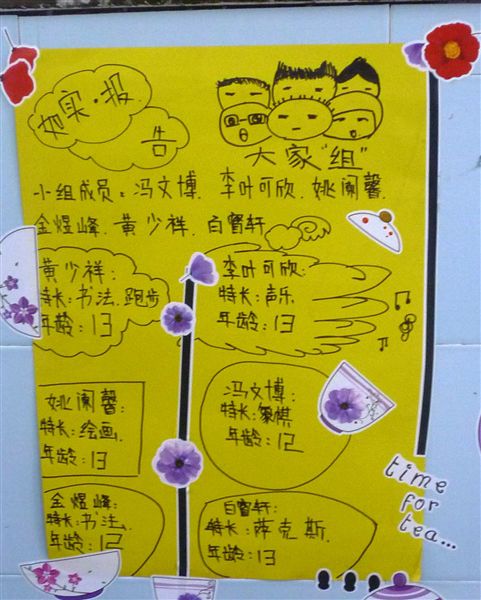 如实·报
告
大家"组"
小组成员:冯文博、李叶可欣、姚阑馨、
金煜峰、黄少祥、白睿轩
黄少祥:
特长:书法、跑步
年龄:13
李叶可欣:
特长:声乐
年龄:13
姚阑馨:
特长:绘画、
年龄:13
冯文博:
特长:象棋
年龄:12
金煜峰:
特长:书法、
年龄:12
白睿轩:
特长:萨克斯
年龄:13
time
for
tea...